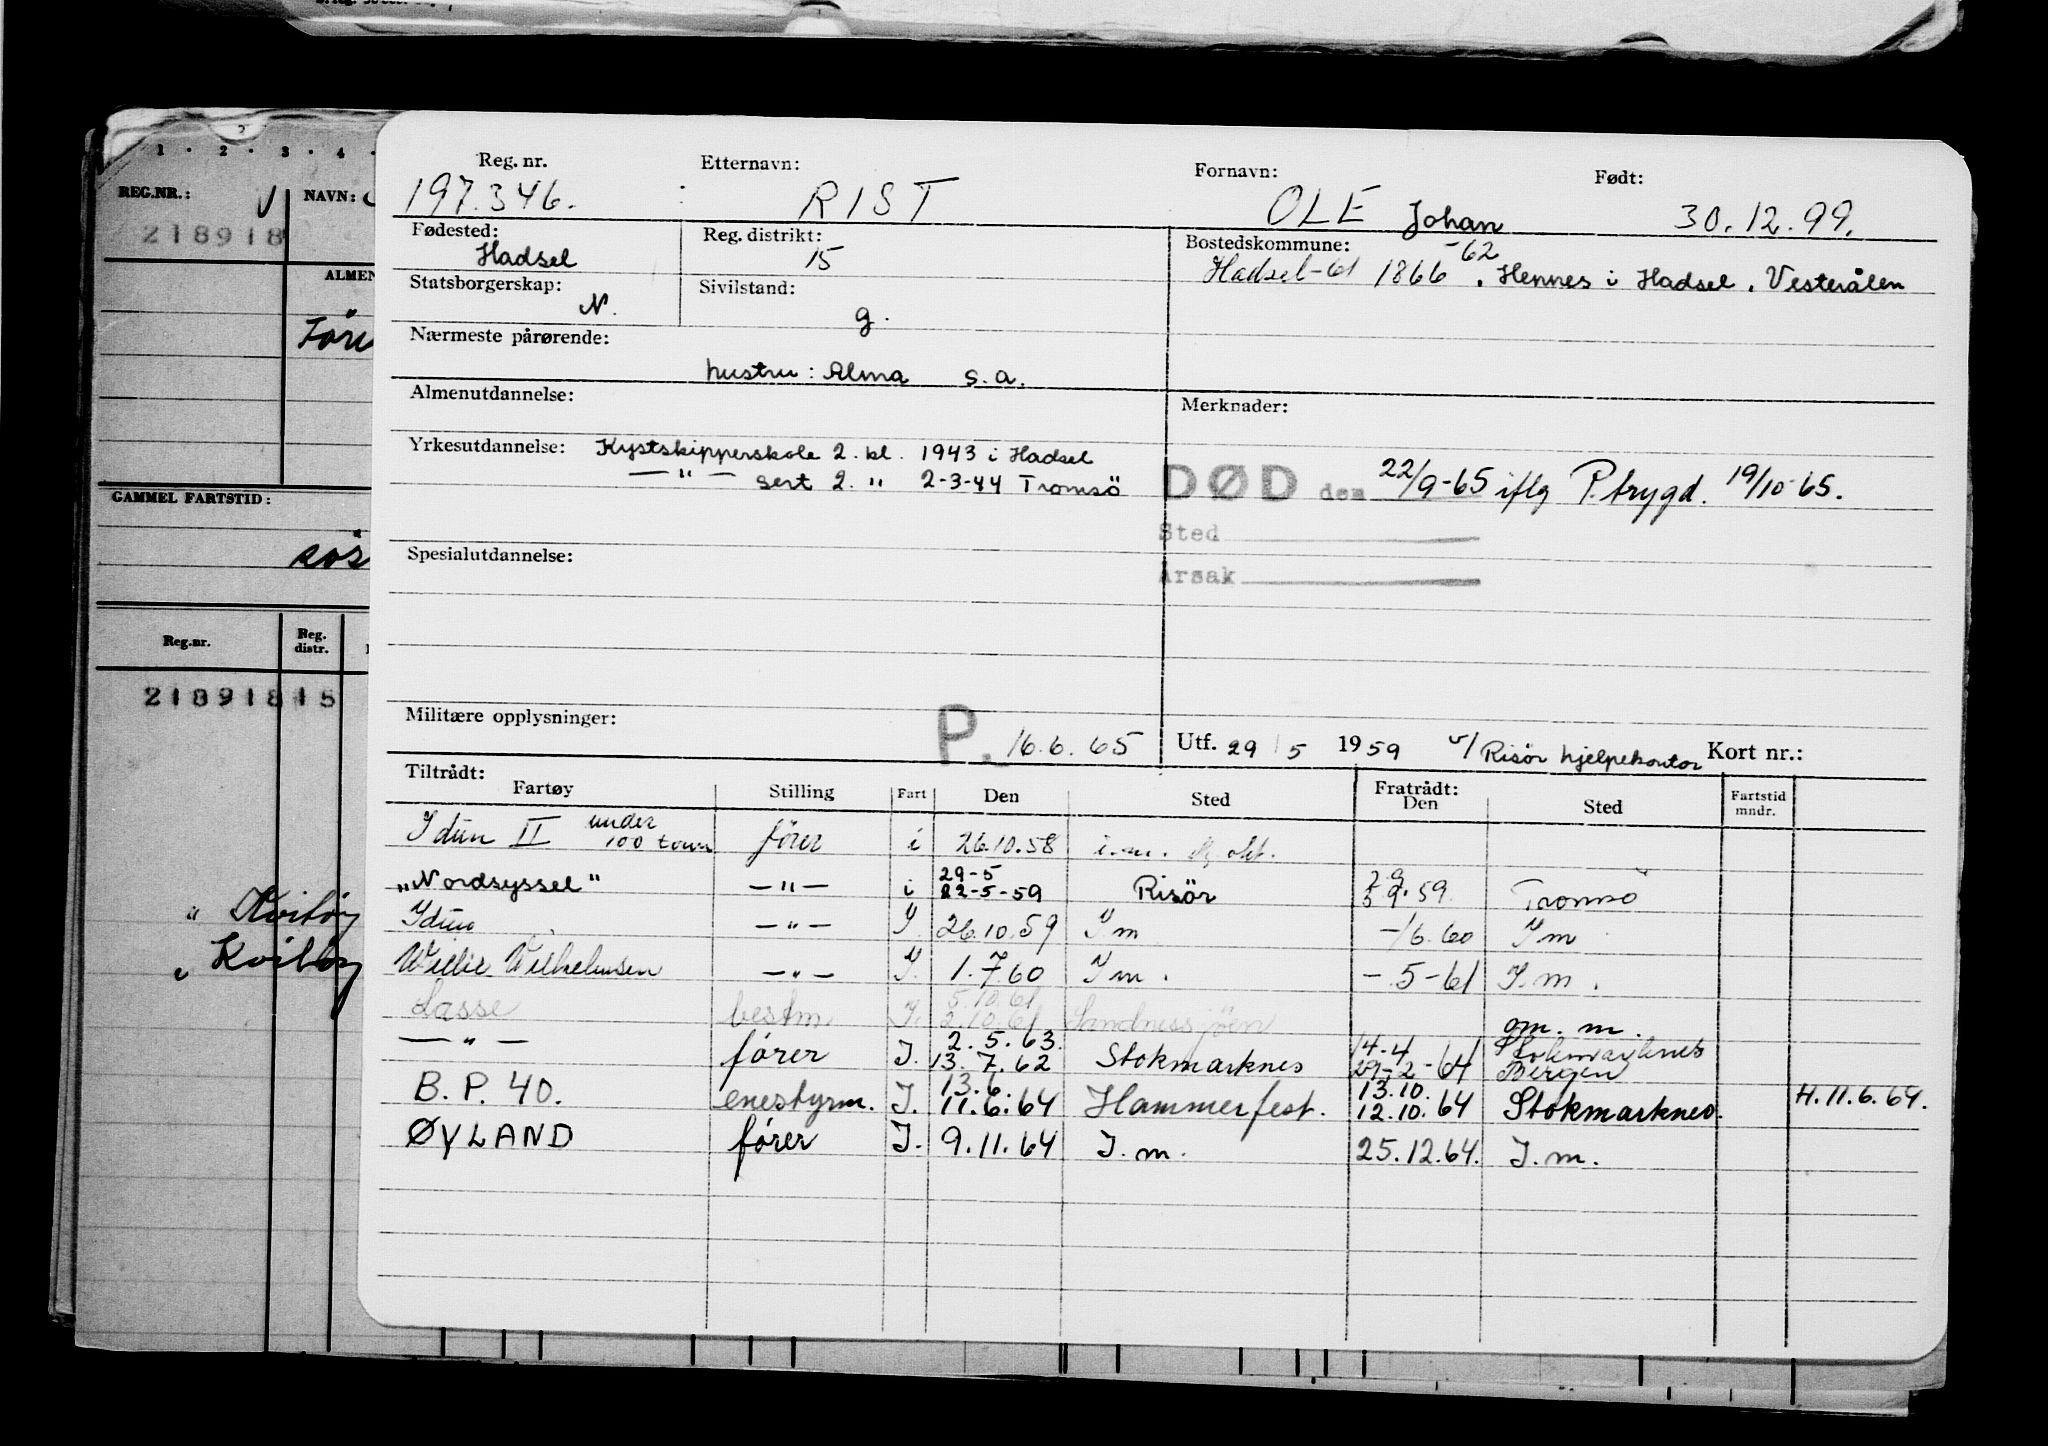 1 . 2 . 3 . 4 .
REG.NR.:
NAVN:
218918
GAMMEL FARTSTID:
Reg.nr.
Reg. distr.
218918 15
" Kvitøy
" Kvitøy
Reg. nr. Etternavn: Fornavn: Født:
197.346. RIST OLE Johan 30.12.99.
Fødested: Reg. distrikt: Bostedskommune:
Hadsel 15 Hadsel-61 1866 -62 . Hennes i Hadsel, Vesterålen
Statsborgerskap: Sivilstand:
N. g.
Nærmeste pårørende:
hustru: Alma s.a.
Almenutdannelse: Merknader:
Yrkesutdannelse: Kystskipperskole 2. kl. 1943 i Hadsel
— " — sert 2. " 2-3-44 Tromsö
DØD den 22/9-65 iflg P.trygd. 19/10-65.
Sted
Årsak
Spesialutdannelse:
Militære opplysninger: P. 16.6.65 Utf. 29/5 1959 v/ Risör hjelpekontor Kort nr.:
Tiltrådt: Fratrådt:
Fartøy Stilling Fart Den Sted Den Sted Fartstid mndr.
Idun II under 100 tonn förer i 26.10.58 i.m.
"Nordsyssel" — " — i 29-5 22-5-59 Risör 9.59 Tromsö
Idun — " — I. 26.10.59 I m - /6.60 I m
Willie Wilhelmsen — " — I. 1.7.60 I m. - 5-61 I. m.
Lasse bestm. I. 5.10.61 2.10.61 Sandnessjöen gm. m.
— " — fører I. 2.5.63. 13.7.62 Stokmarknes 14-4 29-2-64 Stokmarknes Bergen
B.P. 40. enestyrm. I. 13.6. 11.6.64 Hammerfest. 13.10. 12.10.64 Stokmarknes. H.11.6.64.
ØYLAND fører I. 9.11.64 I.m. 25.12.64. I.m.